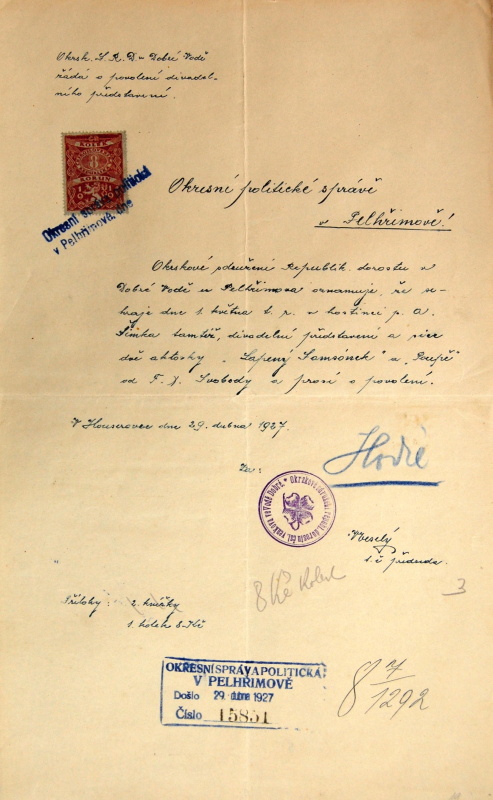 Okrsk. S. R. D. v Dobré Vodě
žádá o povolení divadel-
ního představení.
8
KORUN
Okresní správa politická
v Pelhřimově, dne
Okresní politické správě
v Pelhřimově!
Okrskové sdružení Republik. dorostu v
Dobré Vodě u Pelhřimova oznamuje, že se-
hraje dne 1. května t. r. v hostinci p. A.
Šimka tamtéž, divadelní představení a sice
dvě aktovky "Lapený Samsónek" a "Poupě"
od F. X. Svobody a prosí o povolení.
V Houserovce dne 29. dubna 1927.
Za:
Veselý
t. č. předseda.
8 Kč Kolek
3
Přílohy: 2 knížky
1 kolek 8 Kč
OKRESNÍ SPRÁVA POLITICKÁ
V PELHŘIMOVĚ
Došlo 29. dubna 1927
Číslo 15851
8 7/1292